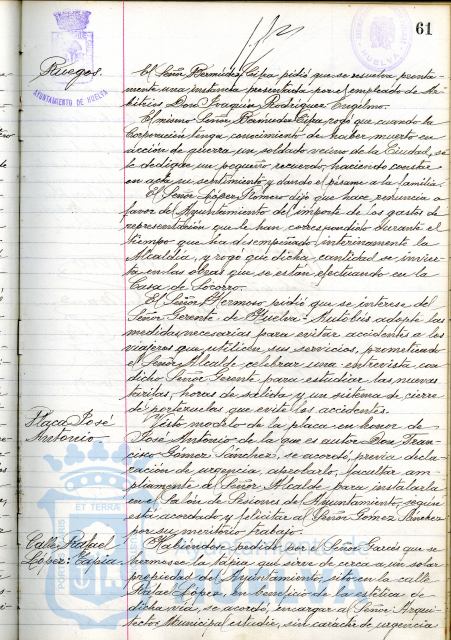 61
AYUNTAMIENTO DE HUELVA
HUELVA
Ruegos.
El Señor Bermúdez Cipa pidió que se resuelva pronta-
mente una instancia presentada por el empleado de Ar-
bitrios Don Joaquín Rodríguez
El mismo Señor Bermúdez Cipa rogó que cuando la
Corporación tenga conocimiento de haber muerto en
acción de guerra un soldado vecino de la Ciudad, se
le dedique un pequeño recuerdo, haciendo constar
en acta su sentimiento y dando el pésame a la familia.
El Señor López Romero dijo que hace renuncia a
favor del Ayuntamiento del importe de los gastos de
representación que le han correspondido durante el
tiempo que ha desempeñado interinamente la
Alcaldía, y rogó que dicha cantidad se invier-
ta en las obras que se están efectuando en la
Casa de Socorro.
El Señor Hermoso pidió que se interese del
Señor Gerente de Huelva-Autobús adopte las
medidas necesarias para evitar accidentes a los
viajeros que utilicen sus servicios, prometiendo
el Señor Alcalde celebrar una entrevista con
dicho Señor Gerente para estudiar las nuevas
tarifas, horas de salida y un sistema de cierre
de portezuelas que evite los accidentes.
Placa José
Antonio.
Visto modelo de la placa en honor de
José Antonio de la que es autor Don Fran-
cisco Gómez Sánchez, se acordó, previa decla-
ración de urgencia, aprobarlo, facultar am-
pliamente al Señor Alcalde para instalarla
en el Salón de Sesiones del Ayuntamiento, según
está acordado y felicitar al Señor Gómez Sánchez
por su meritorio trabajo.
Calle Rafael
López: Tapia
Habiéndose pedido por el Señor Garcés que se
hermosee la tapia que sirve de cerca a un solar
propiedad del Ayuntamiento, sito en la calle
Rafael López, en beneficio de la estética de
dicha vía, se acordó, encargar al Señor Arqui-
tecto Municipal estudie, sin carácter de urgencia